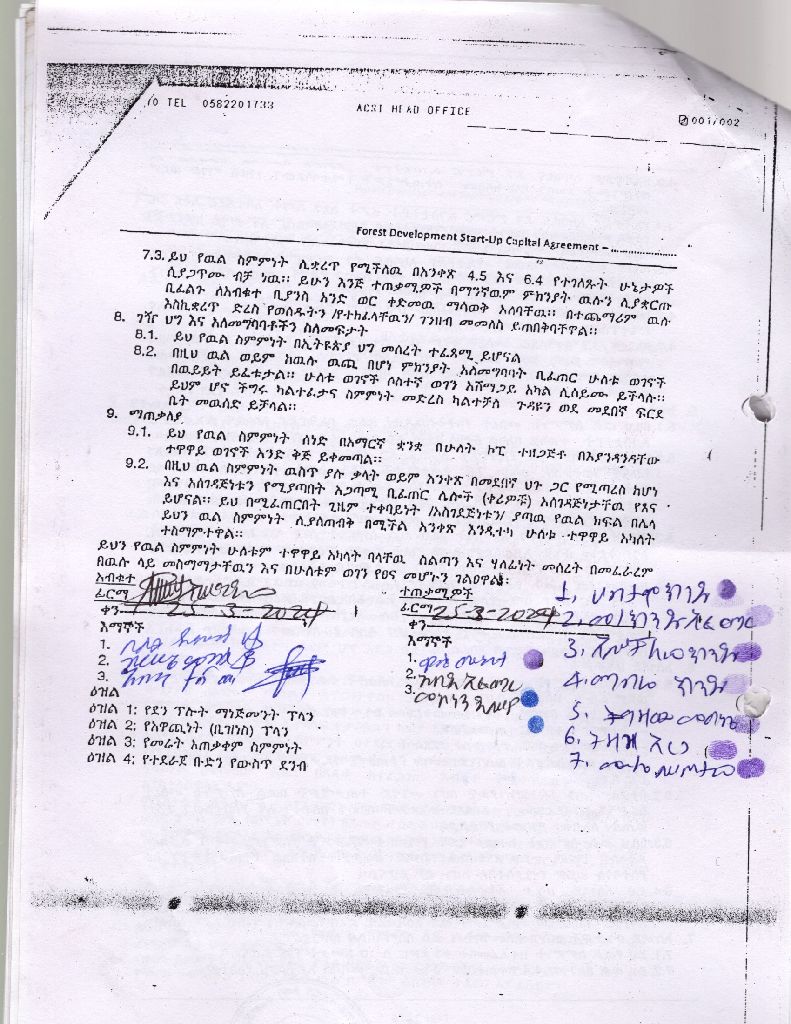 /0 TEL 0582201733 ACSI HEAD OFFICE 001/002
Forest Development Start-Up Capital Agreement – ....................
7.3. ይህ የዉል ስምምነት ሊቋረጥ የሚችለዉ በአንቀጽ 4.5 እና 6.4 የተገለጹት ሁኔታዎች
ሲያጋጥሙ ብቻ ነዉ፡፡ ይሁን እንጅ ተጠቃሚዎች በማንኛዉም ምክንያት ዉሉን ሊያቋርጡ
ቢፈልጉ ለአብቁተ ቢያንስ አንድ ወር ቀድመዉ ማሳወቅ አለባቸዉ፡፡ በተጨማሪም ዉሉ
እስኪቋረጥ ድረስ የወሰዱትን /የተከፈላቸዉን/ ገንዘብ መመለስ ይጠበቅባቸዋል፡፡
8. ገዥ ህግ እና አለመግባባቶችን ስለመፍታት
8.1. ይህ የዉል ስምምነት በኢትዩጵያ ህግ መሰረት ተፈጻሚ ይሆናል
8.2. በዚህ ዉል ወይም ከዉሉ ዉጪ በሆነ ምክንያት አለመግባባት ቢፈጠር ሁለቱ ወገኖች
በዉይይት ይፈቱታል፡፡ ሁለቱ ወገኖች ሶስተኛ ወገን አሸማጋይ አካል ሊሰይሙ ይችላሉ፡፡
ይህም ሆኖ ችግሩ ካልተፈታና ስምምነት መድረስ ካልተቻለ ጉዳዩን ወደ መደበኛ ፍርድ
ቤት መዉሰድ ይቻላል፡፡
9. ማጠቃለያ
9.1. ይህ የዉል ስምምነት ሰነድ በአማርኛ ቋንቋ በሁለት ኮፒ ተዘጋጅቶ በእያንዳንዳቸው
ተዋዋይ ወገኖች እንድ ቅጅ ይቀመጣል፡፡
9.2. በዚህ ዉል ስምምነት ዉስጥ ያሉ ቃላት ወይም አንቀጽ በመደበኛ ህጉ ጋር የሚጣረስ ከሆነ
እና አስገዳጅነቱን የሚያጣበት አጋጣሚ ቢፈጠር ሌሎች (ቀሪዎቹ) አስገዳጅነታቸዉ የጸና
ይሆናል፡፡ ይህ በሚፈጠርበት ጊዜም ተቀባይነት /አስገደጅነቱን/ ያጣዉ የዉል ክፍል በሌላ
ይህን ዉል ስምምነት ሊያስጠብቅ በሚችል አንቀጽ እንዲተካ ሁለቱ ተዋዋይ አካላት
ተስማምተዋል፡፡
ይህን የዉል ስምምነት ሁለቱም ተዋዋይ አካላት ባላቸዉ ስልጣን እና ሃላፊነት መሰረት በመፈራረም
በዉሉ ላይ መስማማታቸዉን እና በሁለቱም ወገን የፀና መሆኑን ገልፀዋል፡
አብቁተ
ፊርማ
ቀን 25-3-2024
እማኞች
1.
2.
3.
ተጠቃሚዎች
ፊርማ 25-3-2024
ቀን
እማኞች
1.
2.
3.
1,
2.
3.
4.
5.
6.
7.
ዕዝል
ዕዝል 1: የደን ፕሎት ማነጅመንት ፕላን
ዕዝል 2: የአዋጪነት (ቢዝነስ) ፕላን
ዕዝል 3: የመሬት አጠቃቀም ስምምነት
ዕዝል 4: የተደራጀ ቡድን የውስጥ ደንብ